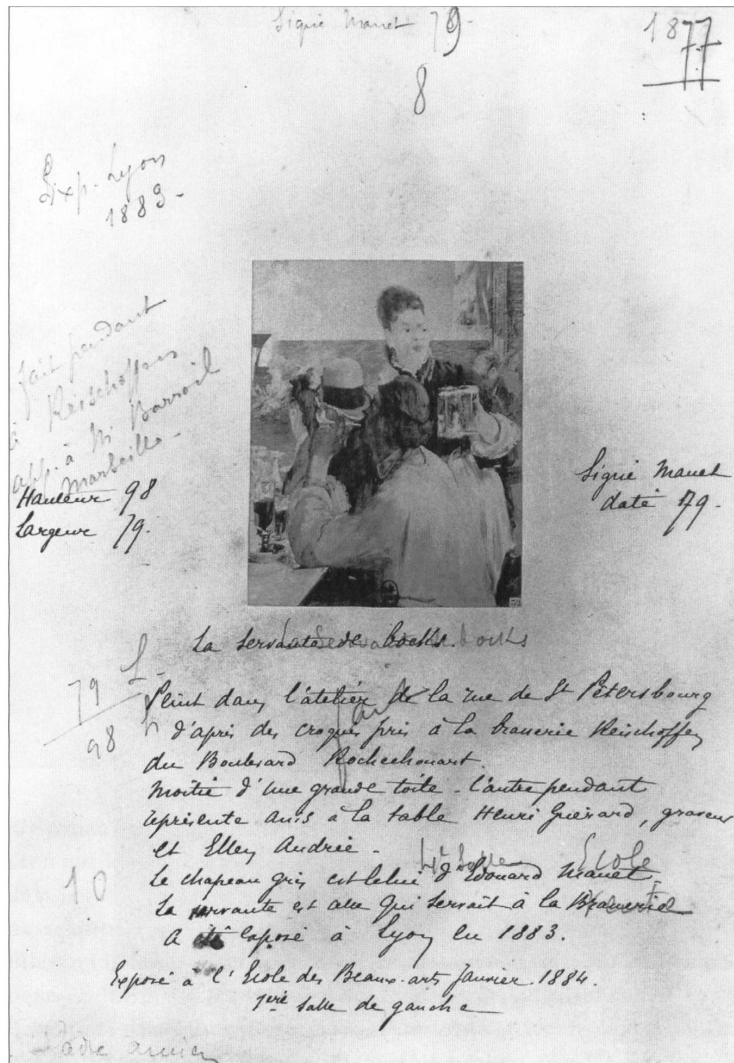 Signé Manet 79-
8
1877
Exp. Lyon
1883-
fait pendant
à Reischoffen
app. à M. Barroil
Marseille-
Hauteur 98
Largeur 79.
Signé Manet
daté 79-
La servante de bocks.
79
98
Peint dans l'atelier de la rue de St Pétersbourg
d'après des croquis pris à la brasserie Reischoffen
du Boulevard Rochechouart.
Moitié d'une grande toile - l'autre pendant
représente assis à la table Henri Guérard, graveur
et Ellen Andrée -
École
Le chapeau gris est celui d'Edouard Manet
La servante est celle qui servait à la Brasserie
10
A été exposé à Lyon en 1883.
Exposé à l'Ecole des Beaux-arts Janvier 1884.
1ère salle de gauche